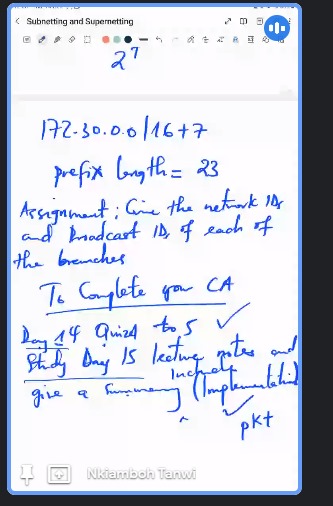 Subnetting and Supernetting
2⁷
172.30.0.0/16+7
prefix length = 23
Assignment: Give the network IDs
and broadcast IDs of each of
the branches
To Complete your CA
Day 14 Quiz 4 to 5 ✓
Study Day 15 lecture notes and
give a summary (Implementation
include
✓
pkt
Nkiamboh Tanwi